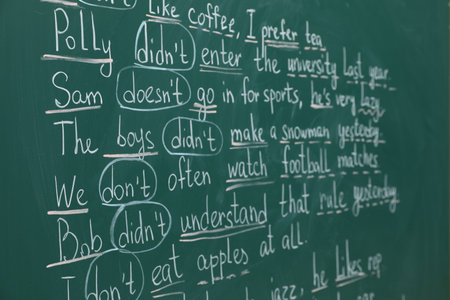 like coffee, I prefer tea
Polly didn't enter the university last year
Sam doesn't go in for sports, he's very lazy
The boys didn't make a snowman yesterday
We don't often watch football matches
Bob didn't understand that rule yesterday
I don't eat apples at all.
jazz, he likes rap